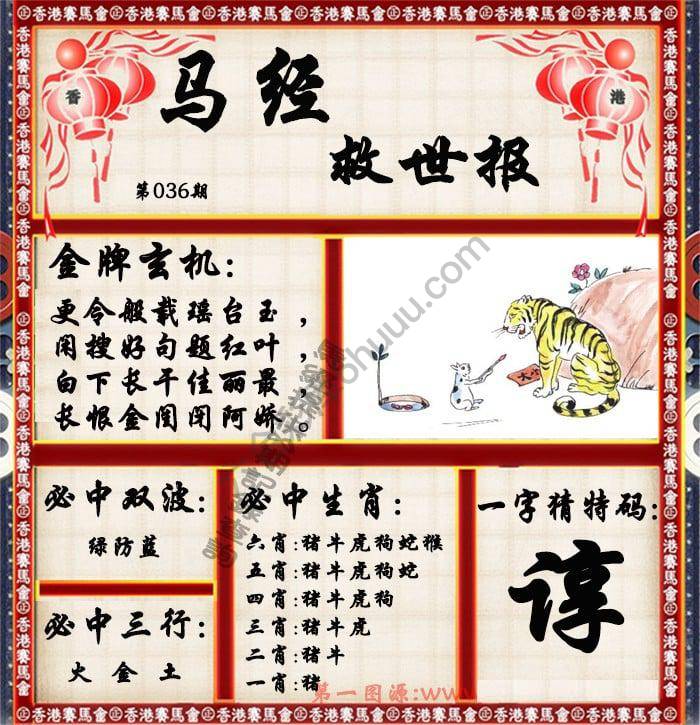 香港賽馬會
香
港
马经
救世报
第036期
金牌玄机：
更令般载瑶台玉，
闲搜好句题红叶，
白下长干佳丽最，
长恨金闺闭阿娇。
必中双波：
绿防蓝
必中三行：
火金土
必中生肖：
六肖：猪牛虎狗蛇猴
五肖：猪牛虎狗蛇
四肖：猪牛虎狗
三肖：猪牛虎
二肖：猪牛
一肖：猪
一字猜特码：
谆
第一图源：www